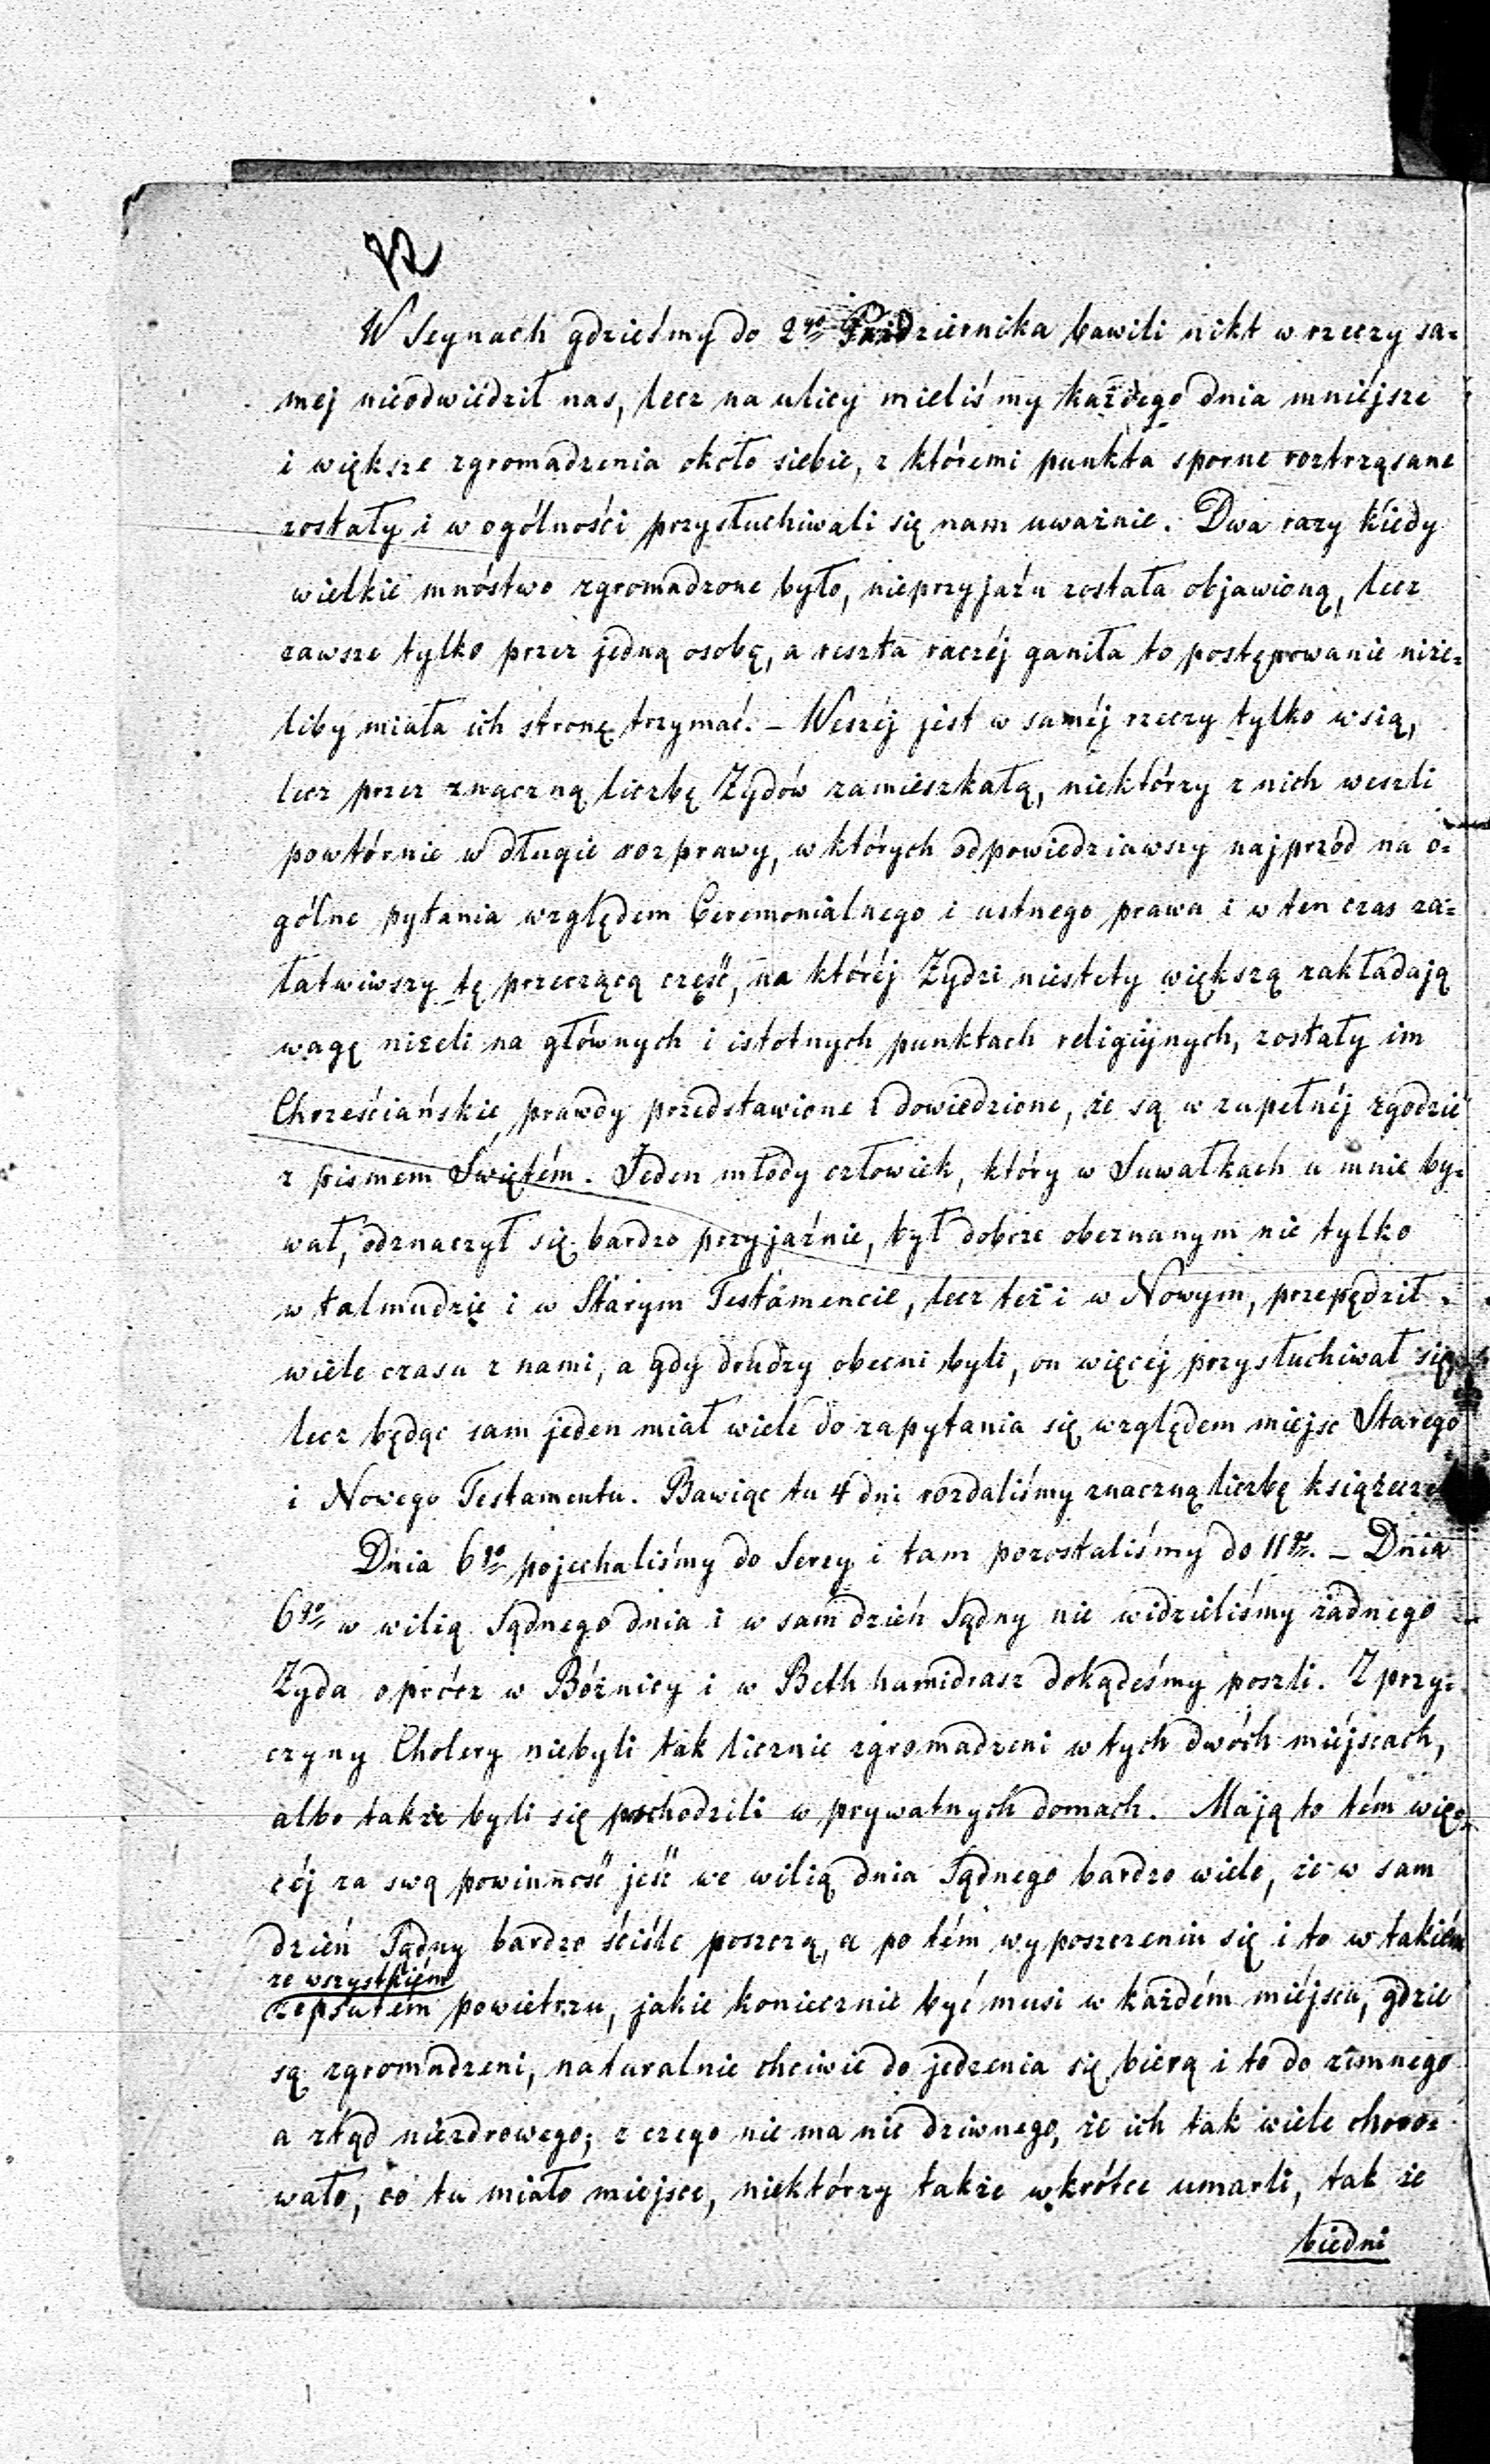 72
W Seynach gdzieśmy do 2go Pazdziernika bawili nikt w rzeczy sa=
mej nieodwiédził nas, lecz na ulicy mieliśmy każdego dnia mniéjsze
i większe zgromadzenia około siebie, z któremi punkta sporne roztrząsane
zostały i w ogólności przysłuchiwali się nam uważnie. Dwa razy kiedy
wielkie mnóstwo zgromadzone było, nieprzyjaźń została objawioną, lecz
zawsze tylko przez jedną osobę, a reszta raczéj ganiła to postępowanie niże=
liby miała ich stronę trzymać. – Weszéj jest w saméj rzeczy tylko wsią,
lecz przez znaczną liczbę Żydów zamieszkałą, niektórzy z nich weszli
powtórnie w długie rozprawy, w których odpowiedziawszy najprzód na o=
gólne pytania względem Ceremonialnego i ustnego prawa i w ten czas za=
łatwiwszy tę przeczącą część, na któréj Żydzi niestety większą zakładają
wagę niżeli na głównych i istotnych punktach religiynych, zostały im
Chrześciańskie prawdy przedstawione i dowiedzione, że są w zupełnéj zgodzie
z pismem Swiętém. Jeden młody człowiek, który w Suwałkach u mnie by=
wał, odznaczył się bardzo przyjaźnie, był dobrze obeznanym nie tylko
w talmudzie i w Starym Testamencie, lecz też i w Nowym, przepędził
wiele czasu z nami, a gdy drudzy obecni byli, on więcéj przysłuchiwał się,
lecz będąc sam jeden miał wiele do zapytania się względem miejsc Starego
i Nowego Testamentu. Bawiąc tu 4 dni rozdaliśmy znaczną liczbę książecze
Dnia 6go pojechaliśmy do Serey i tam pozostaliśmy do 11go. – Dnia
6go w wilią Sądnego dnia i w sam dzień Sądny nie widzieliśmy żadnego
Żyda oprócz w Bóżnicy i w Beth hamidrasz dokądeśmy poszli. Z przy=
czyny Cholery niebyli tak licznie zgromadzeni w tych dwóch miéjscach,
albo także byli się poschodzili w prywatnych domach. Mają to tém wię=
céj za swą powinność jeść we wilią dnia Sądnego bardzo wiele, że w sam
dzień Sądny bardzo ściśle poszczą, a po tém wyposzczeniu się i to w takiém
ze wszystkiém
zepsutém powietrzu, jakie koniecznie być musi w każdém miéjscu, gdzie
są zgromadzeni, naturalnie chciwie do jedzenia się bierą i to do zimnego
a ztąd niezdrowego; z czego nie ma nic dziwnego, że ich tak wiele choro=
wało, co tu miało miejsce, niektórzy także wkrótce umarli, tak że
biedni